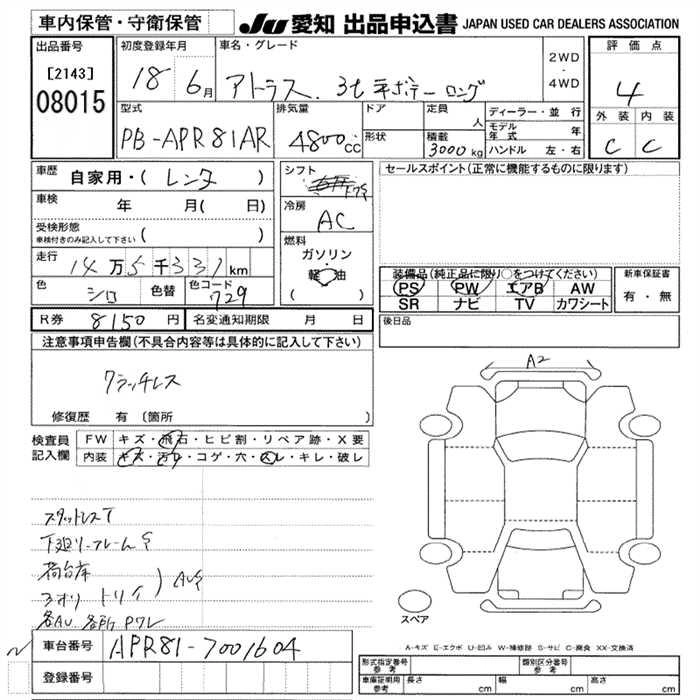 車内保管・守衛保管
JU 愛知 出品申込書 JAPAN USED CAR DEALERS ASSOCIATION
出品番号
[2143]
08015
初度登録年月
18 6月
車名・グレード
アトラス. 3t 平ボデー ロング
2WD
・
4WD
評価点
4
外装 内装
C C
型式
PB-APR81AR
排気量
4800cc
ドア
形状
定員
人
積載
3000kg
ディーラー・並行
モデル年式 年
ハンドル 左・右
車歴
自家用・( レンタ )
車検 年 月( 日)
受検形態
車検付きのみ記入して下さい ( )
走行
14万5千331km
色 シロ 色替 色コード 729
シフト
冷房
AC
燃料
ガソリン
・
軽油
( )
R券 8150円 名変通知期限 月 日
セールスポイント(正常に機能するものに限ります)
装備品(純正品に限り○をつけてください)
PS PW エアB AW
SR ナビ TV カワシート
新車保証書
有・無
後日品
注意事項申告欄(不具合内容等は具体的に記入して下さい)
クラッチレス
修復歴 有 (箇所
検査員記入欄
FW キズ・飛石・ヒビ割・リペア跡・X要
内装 キズ・汚レ・コゲ・穴・スレ・キレ・破レ
A2
スタットレスT
下廻リーフレームS
荷台床
アオリ トリイ ) AUS
各AU 各所Pワレ
スペア
A-キズ E-エクボ U-凹み W-補修跡 S-サビ C-腐食 XX-交換済
車台番号 APR81-7001604
登録番号
形式指定番号 参考
類別区分番号 参考
車庫証明用 参考 長さ cm 幅 cm 高さ cm